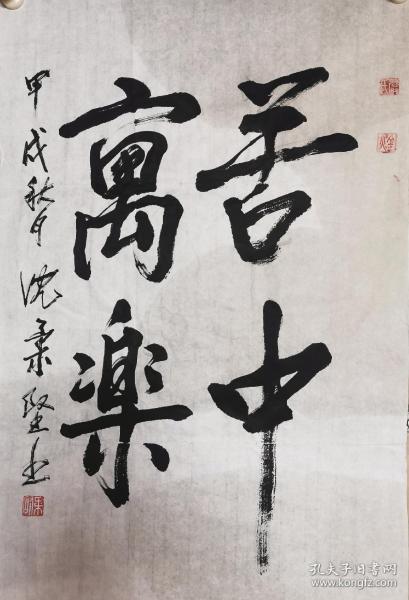 苦中
寓楽
甲戌秋月沈秉坚书
孔夫子旧书网
www.kongfz.com